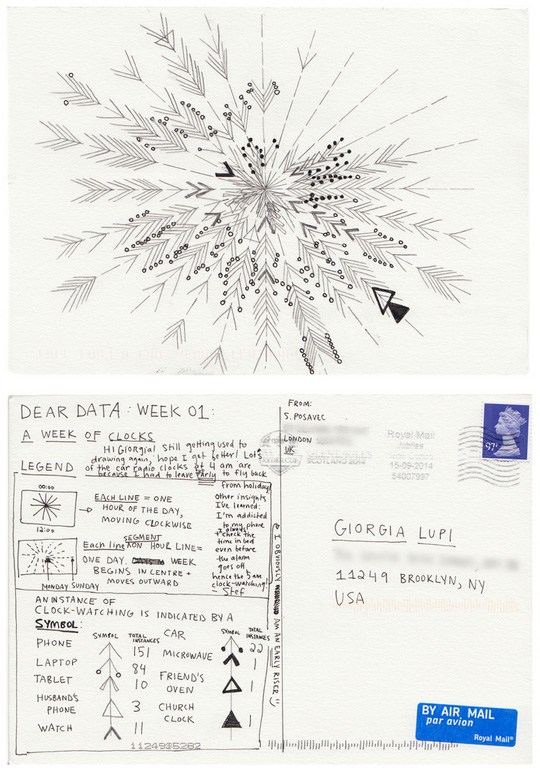 DEAR DATA: WEEK 01:
A WEEK OF CLOCKS
Hi GIORGIA! Still getting used to
drawing again, hope I get better! Lots
of the car radio clocks at 4 am are
because I had to leave early to fly back
from holiday
other insights
I've learned:
I'm addicted
to my phone
+ always
check the
time in bed
even before
the alarm
goes off
hence the 5 am
clock-watching!
- Stef
LEGEND
00:00
12:00
EACH LINE = ONE
HOUR OF THE DAY,
MOVING CLOCKWISE
SEGMENT
Each line ON HOUR LINE=
ONE DAY. WEEK
BEGINS IN CENTRE +
MOVES OUTWARD
MONDAY SUNDAY
& I OBVIOUSLY AM AN EARLY RISER
AN INSTANCE OF
CLOCK-WATCHING IS INDICATED BY A
SYMBOL:
SYMBOL TOTAL INSTANCES
PHONE 151
LAPTOP 84
TABLET 10
HUSBAND'S
PHONE 3
WATCH 11
SYMBOL TOTAL INSTANCES
CAR 22
MICROWAVE 1
FRIEND'S
OVEN 1
CHURCH
CLOCK 1
FROM:
S. POSAVEC
LONDON
UK
Royal Mail
SCOTLAND 2014
15-09-2014
84007997
GIORGIA LUPI
11249 BROOKLYN, NY
USA
BY AIR MAIL
par avion
Royal Mail®